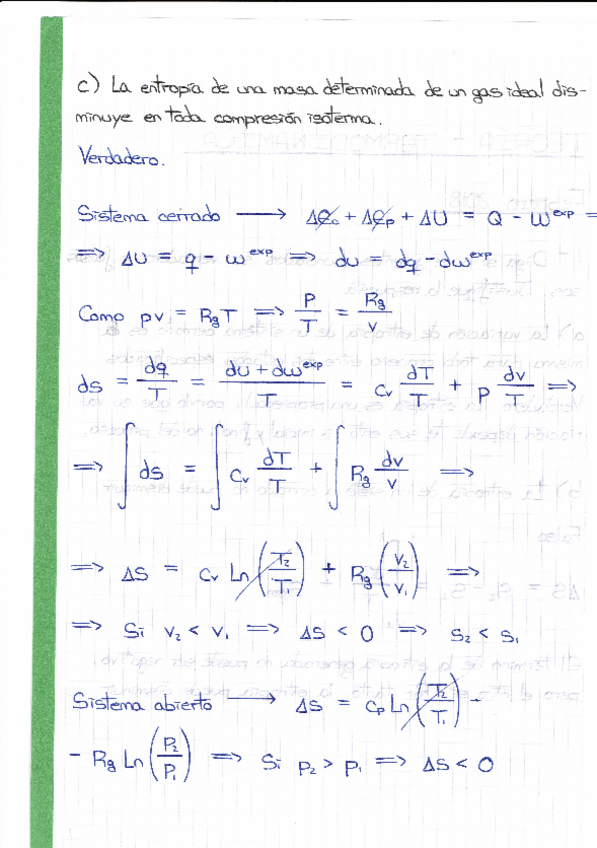 c) La entropía de una masa determinada de un gas ideal dis-
minuye en toda compresión isoterma.
Verdadero.
Sistema cerrado ⟶ ΔEc + ΔEp + ΔU = Q - W^exp =
=> Δu = q - w^exp => du = dq - dw^exp
Como pv = RgT => P/T = Rg/v
ds = dq/T = (du + dw^exp)/T = cv dT/T + p dv/T =>
=> ∫ds = ∫cv dT/T + ∫Rg dv/v =>
=> Δs = cv Ln(T2/T1) + Rg(v2/v1) =>
=> Si v2 < v1 => Δs < 0 => s2 < s1
Sistema abierto ⟶ Δs = cp Ln(T2/T1) -
- Rg Ln(P2/P1) => Si p2 > p1 => Δs < 0